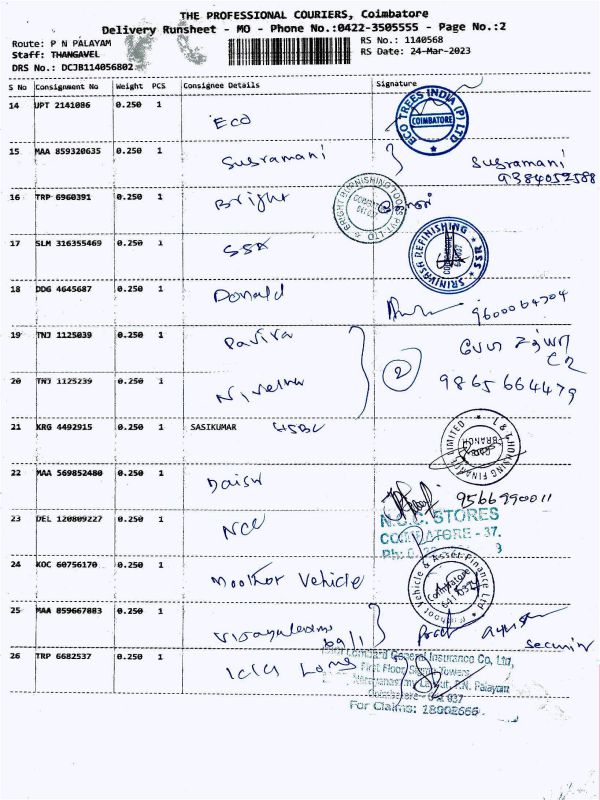 THE PROFESSIONAL COURIERS, Coimbatore
Delivery Runsheet - MO - Phone No.:0422-3505555 - Page No.:2
Route: P N PALAYAM
RS No.: 1140568
Staff: THANGAVEL
RS Date: 24-Mar-2023
DRS No.: DCJB114056802
S No Consignment No Weight PCS Consignee Details Signature
14 UPT 2141086 0.250 1 Eco
ECO TREES INDIA (P) LTD
COIMBATORE
15 MAA 859320635 0.250 1 Susramani Susramani
9384052588
16 TRP 6960391 0.250 1 Bright
BRIGHT BURNISHING TOOLS PVT. LTD
17 SLM 316355469 0.250 1 SSR
SRINIVASA REFINISHING
18 DDG 4645687 0.250 1 Donald
19 TNJ 1125039 0.250 1 Pavira
20 TNJ 1125239 0.250 1
2
9865664479
21 KRG 4492915 0.250 1 SASIKUMAR HSBC
L & T HOUSING FINANCE LIMITED
BRANCH
22 MAA 569852480 0.250 1
9566990011
23 DEL 120809227 0.250 1 NCC
N.C.C. STORES
COIMBATORE - 37.
24 KOC 60756170 0.250 1 Moothot Vehicle
Muthoot Vehicle & Asset Finance Ltd
Coimbatore
25 MAA 859667883 0.250 1
Security
26 TRP 6682537 0.250 1 ICICI Lom
Lombard General Insurance Co, Ltd,
First Floor, Towers
P.N. Palayam
For Claims: 18002666